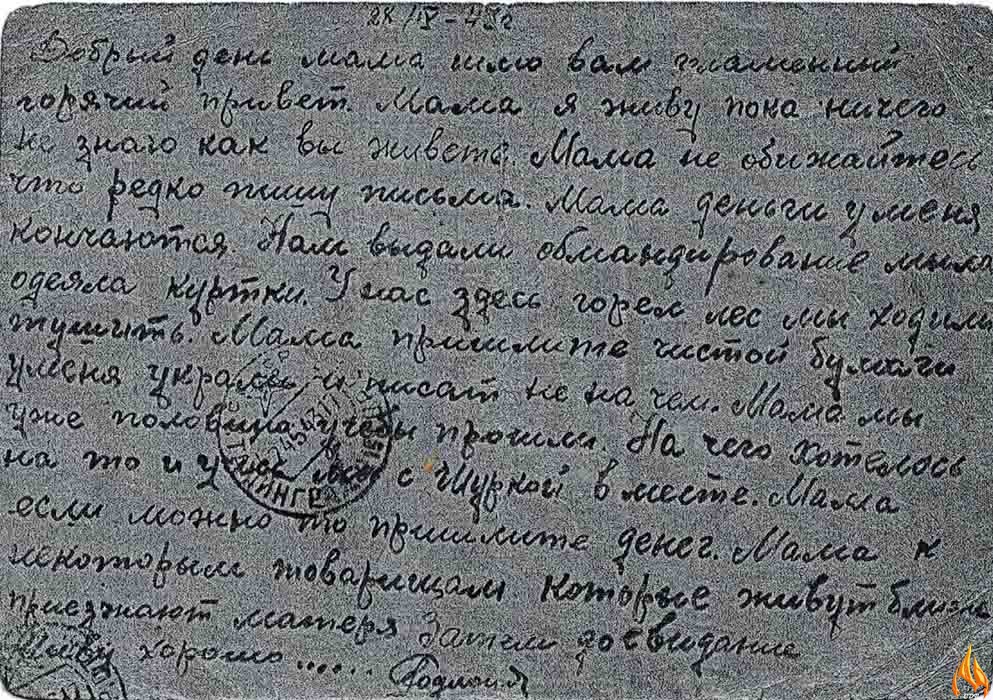 28/IV-45г
Добрый день мама шлю вам пламенный
горячий привет. Мама я живу пока ничего
не знаю как вы живете. Мама не обижайтесь
что редко пишу письма. Мама деньги у меня
кончаются. Нам выдали обмандирование мыло
одеяла куртки. У нас здесь горел лес мы ходили
тушить. Мама пришлите чистой бумаги
у меня украли и писат не на чем. Мама мы
уже половина учебы прошли. На чего хотелось
на то и с Шуркой в месте. Мама
если можно то пришлите денег. Мама к
некоторым товарищам которые живут близко
приезжают матеря Затем досвидание
Живу хорошо......